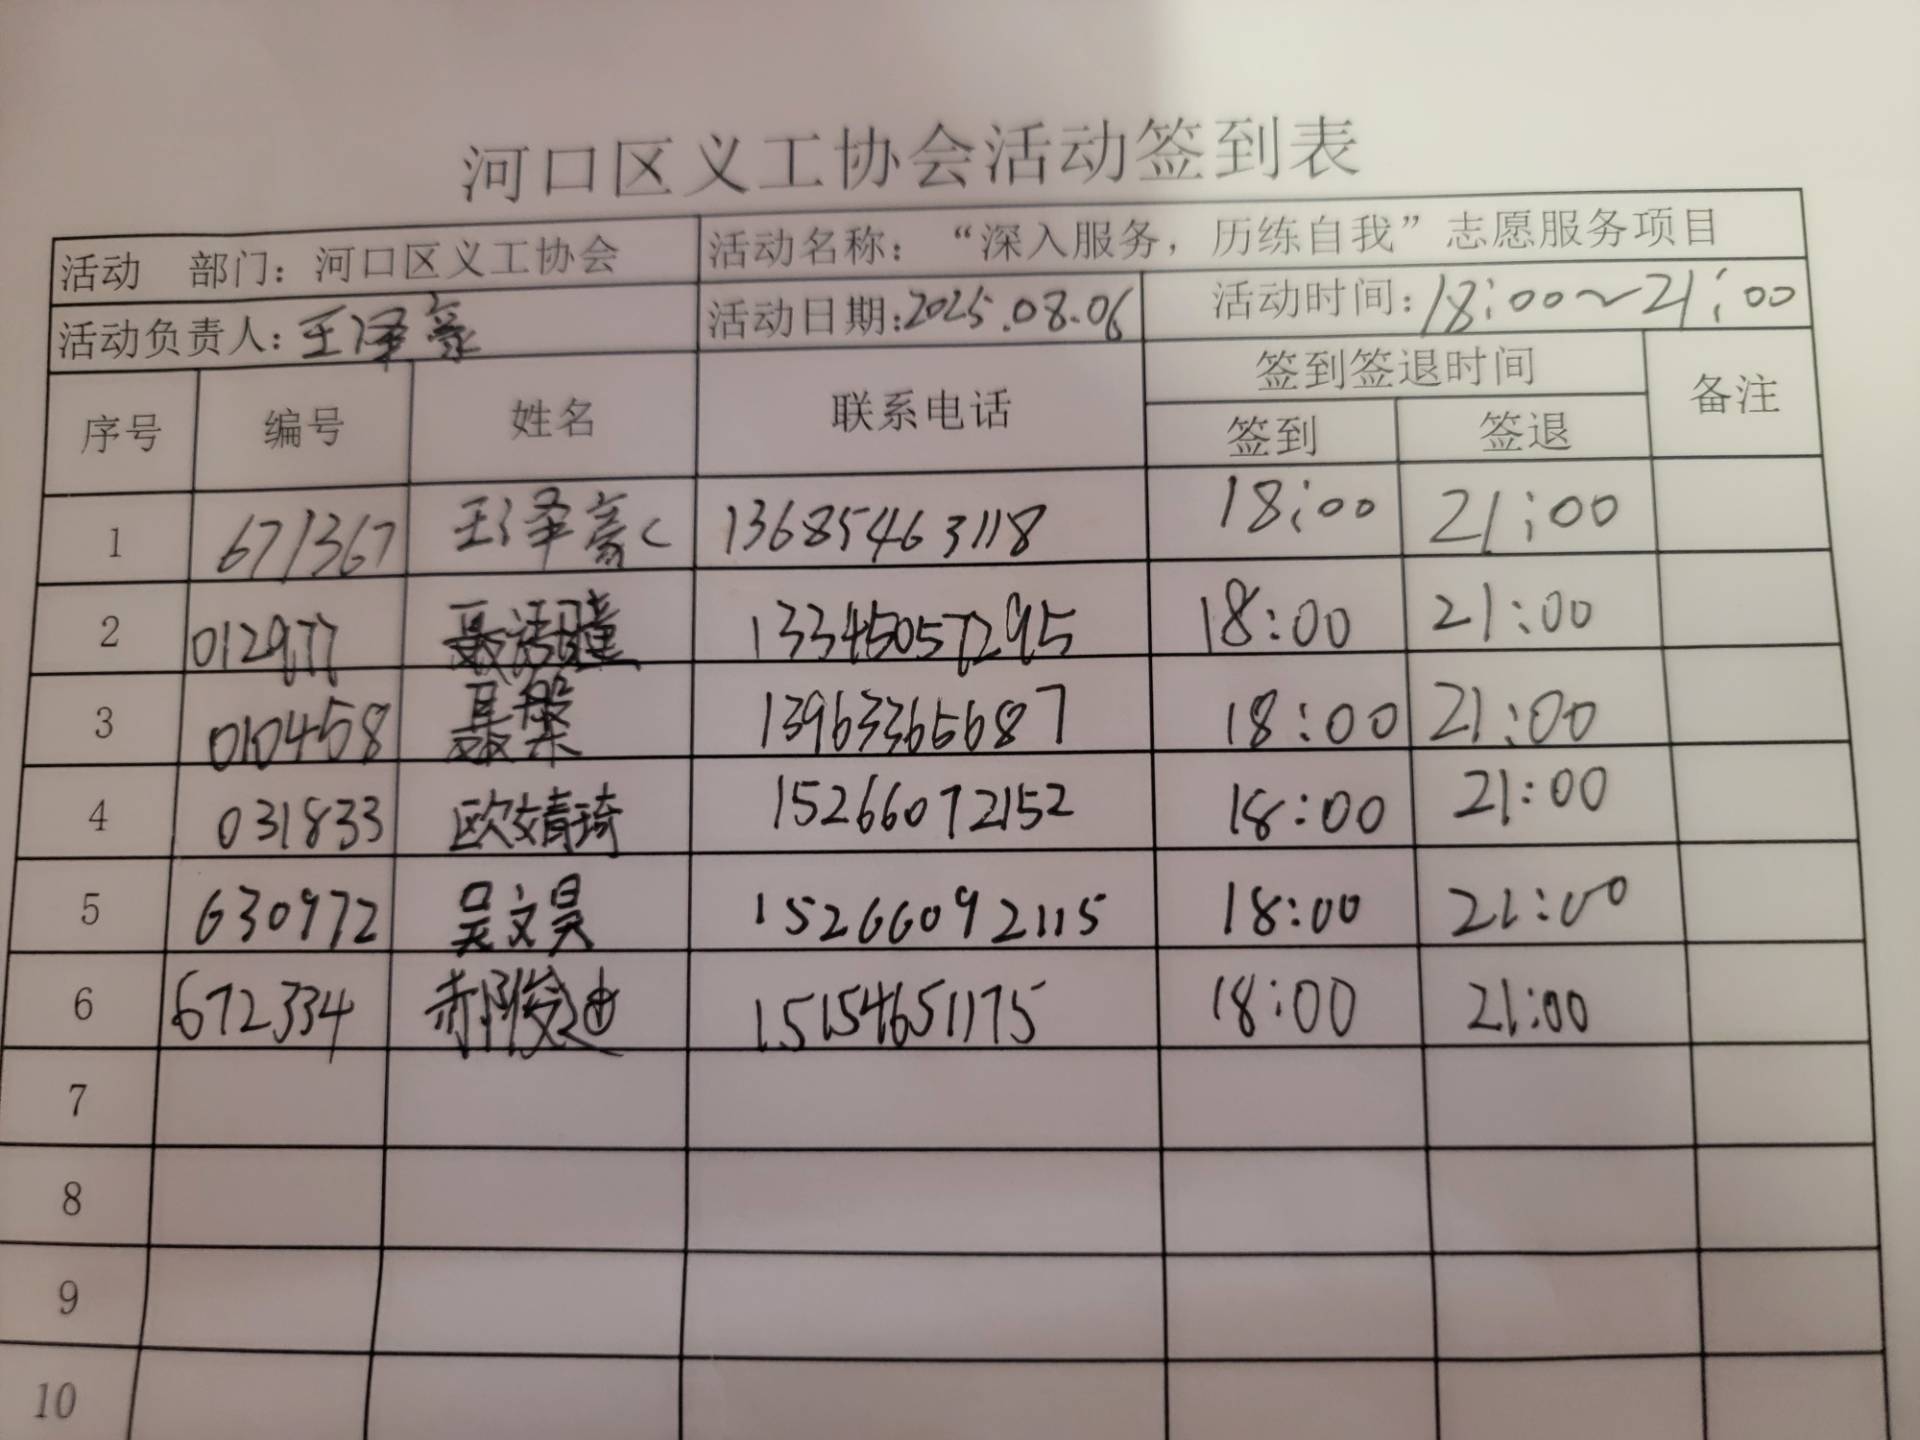 河口区义工协会活动签到表
活动 部门：河口区义工协会 活动名称：“深入服务，历练自我”志愿服务项目
活动负责人：王泽豪 活动日期：2025.08.06 活动时间：18:00~21:00
序号 编号 姓名 联系电话 签到签退时间 备注
签到 签退
1 671367 王泽豪 13685463118 18:00 21:00
2 012977 聂 13345057295 18:00 21:00
3 010458 聂 13963365687 18:00 21:00
4 031833 欧婧琦 15266072152 18:00 21:00
5 630972 吴文昊 15266092115 18:00 21:00
6 672334 郝俊迪 15154651175 18:00 21:00
7
8
9
10